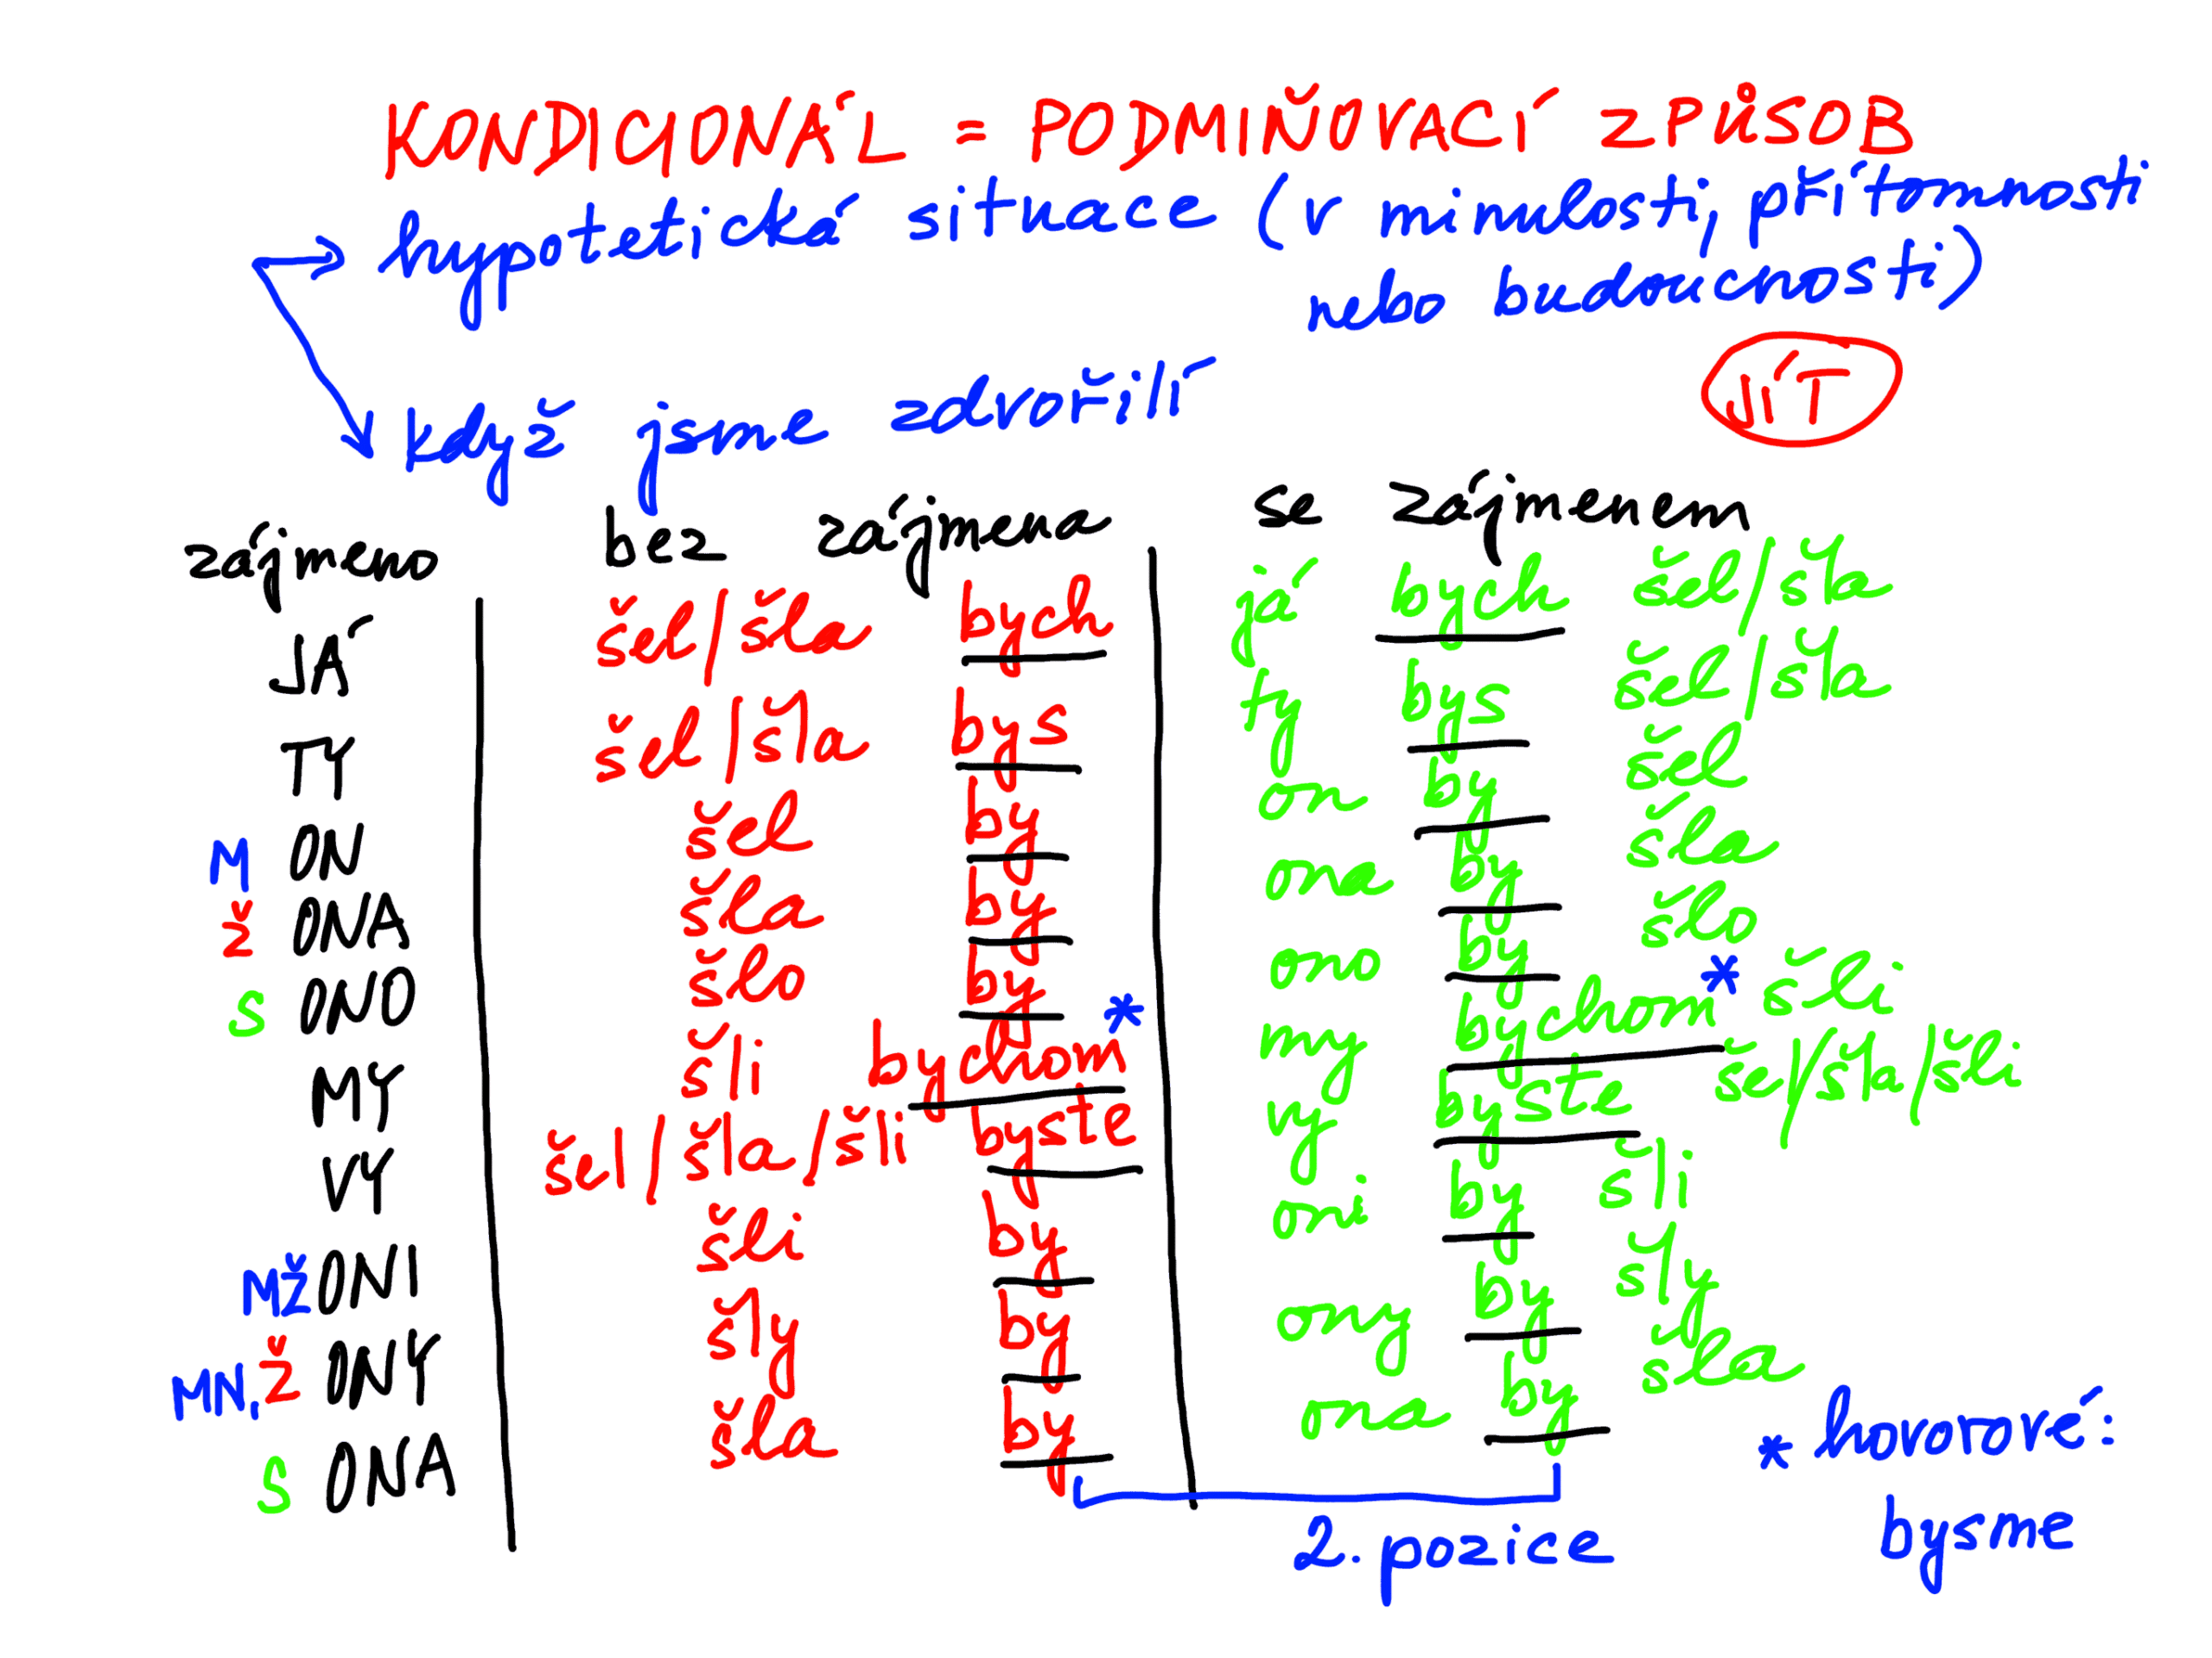 KONDICIONÁL = PODMIŇOVACÍ ZPŮSOB
hypotetická situace (v minulosti, přítomnosti
nebo budoucnosti)
když jsme zdvořilí
JÍT
zájmeno bez zájmena se zájmenem
JÁ šel/šla bych já bych šel/šla
TY šel/šla bys ty bys šel/šla
M ON šel by on by šel
Ž ONA šla by ona by šla
S ONO šlo by ono by šlo
MY šli bychom* my bychom* šli
VY šel/šla/šli byste vy byste šel/šla/šli
MŽ ONI šli by oni by šli
MN, Ž ONY šly by ony by šly
S ONA šla by ona by šla
2. pozice
* hovorové:
bysme